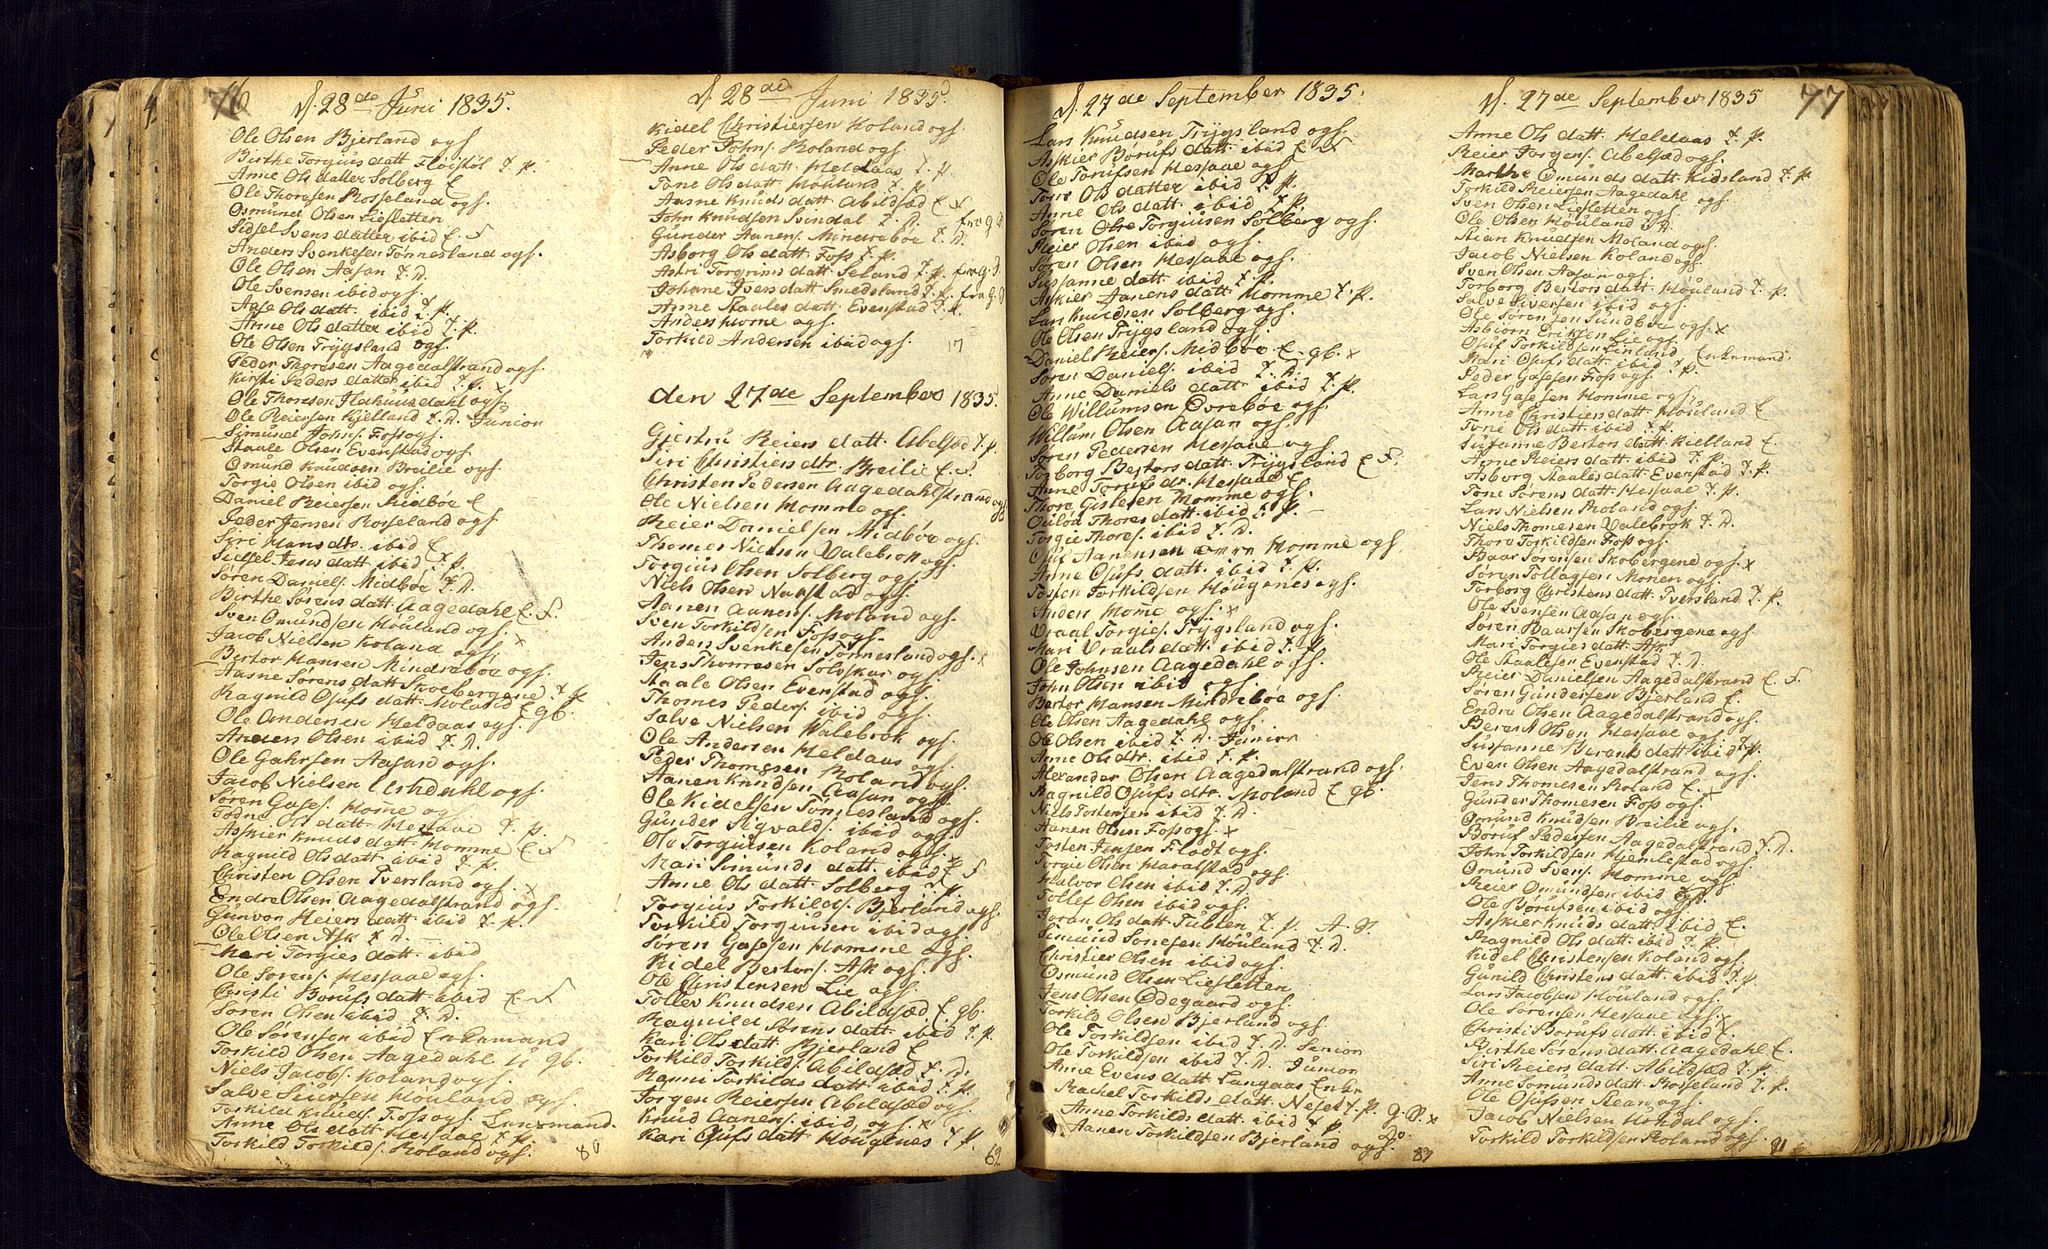 76
d. 28de Juni 1835.
Ole Olsen Bjerland ogs.
Birthe Torgius datt Fløistøl f. p.
Anne Ols datter Solberg E
Ole Thoresen Rosseland ogs.
Osmund Olsen Liesletten
Sidsel Svens datter ibid E. F
Anders Svenkesen Tonnesland ogs.
Ole Olsen Aasan f. D.
Ole Svensen ibid ogs.
Aase Ols datt. ibid f. p.
Anne Ols datter ibid f. p.
Ole Olsen Trÿgsland ogs.
Peder Thoresen Aagedalstrand ogs.
Kirsti Peders datter ibid f. p. x
Ole Thoresen Hakuusdahl ogs.
Ole Reiersen Kjelland f. D. Junior
Simund Johns. Foss ogs.
Staale Olsen Evenstad ogs.
Omund Knudsen Breilie ogs.
Torgie Olsen ibid ogs.
Daniel Reiersen Midbøe E
Peder Jensen Rosseland ogs.
Siri Hans dtr. ibid E
Sidsel Jens datt ibid f. p.
Søren Daniels. Midbøe f. D.
Birthe Sørens datt. Aagedahl E. F.
Sven Omundsen Houland ogs.
Jacob Nielsen Koland ogs. x
Bertor Hansen Mindrebøe ogs.
Aasne Sørens datt Skoebergene f. p
Ragnild Osufs datt. Moland E gb.
Ole Andersen Heldaas ogs.
Anders Olsen ibid f. D.
Ole Gahrsen Aasan ogs.
Jacob Nielsen Urhdahl ogs.
Søren Gases. Home og
Todne Ols datt. Messaae f. p.
Askier Knuds datt Homme E F
Ragnild Ols datt. ibid f. p.
Christen Olsen Tversland ogs. x
Endre Olsen Aagedalstrand ogs.
Gunvor Reiers datt ibid f. p.
Ole Olsen Ask f. D.
Mari Torgies datt ibid
Ole Sørens. Messaae ogs.
Christi Borufs datt. ibid E. F
Søren Olsen ibid f. D.
Ole Sørensen ibid Enkemand
Torkild Olsen Aagedahl U gb.
Niels Jacobs. Koland ogs.
Salve Siursen Houland ogs.
Torkild Knuds. Foss ogs.
Anne Ols datt Messaae f. p.
Torkild Torkilds. Roland ogs.
80
d. 28de Juni 1835.
Kidel Christiersen Koland ogs.
Peder Johns. Roland ogs.
Anne Ols datt. Meldaas f. p.
Tone Ols datt Houland f. p.
Aasne Knuds datt Abildsæd E x
John Knudsen Svindal f. D.
Gunder Aanens. Mindrebøe f. D.
Asborg Ols datt Foss f. p.
Astri Torgrims datt Seland f. p.
Johane Ivers datt Smedsland f. p.
Anne Staales datt. Evenstad f. p.
Anders Home ogs.
Torkild Andersen ibid ogs.
17
den 27de September 1835.
Gjertru Reiers datt. Abelsæd f. p
Siri Christiers dtr. Breilie E. F.
Christen Pedersen Aagedahlstrand ogs
Ole Nielsen Homme ogs.
Reier Danielsen Midbøe ogs.
Thomes Nielsen Valebrok ogs.
Torgius Olsen Solberg ogs.
Niels Olsen Nubstad ogs.
Aanen Aanens. Moland ogs.
Sven Torkildsen Foss ogs.
Anders Svenkesen Tonnesland ogs. x
Jens Thomesen Solsskar ogs.
Staale Olsen Evenstad ogs.
Thomes Peders. ibid ogs.
Salve Nielsen Walebrok ogs.
Ole Andersen Heldaas ogs.
Peder Thomesen Roland ogs.
Aanen Knudsen Aasan ogs.
Ole Kidelsen Tonnesland ogs.
Gunder Sigvalds. ibid ogs.
Ole Torguisen Koland ogs.
Mari Simunds datt. ibid E F
Anne Ols datt. Solberg f. p.
Torgius Torkilds. Bjerland ogs.
Torkild Torguisen ibid ogs.
Søren Gasesen Homme ogs.
Kidel Bertors. Ask ogs.
Ole Christensen Lie ogs.
Tollev Knudsen Abildsæd E. gb.
Ragnild Arens datt. ibid f. p.
Kari Ols datt Bjerland E
Torkild Torkilds. Abildsæd f. D.
Rami Torkilds datt. ibid f. p.
Jorgen Reiersen Abildsæd ogs.
Knud Aanens. ibid, ogs. x
Kari Osufs datt Hougenes f. p.
62
d. 27de September 1835.
Lars Knudsen Trÿgsland ogs.
Askier Børufs datt ibid E F
Ole Torufsen Messaae ogs.
Tone Ols datter ibid f. p.
Anne Ols datt ibid f. p.
Søren Olse Torguisen Solberg ogs.
Reier Olsen ibid ogs.
Søren Olsen Messaae ogs.
Susanne datt. ibid f. p.
Askier Aanens datt Homme f. p.
Lars Knudsen Solberg ogs.
Ole Olsen Trÿgsland ogs.
Daniel Reiers. Midbøe E. gb. x
Søren Daniels. ibid f. D.
Anne Daniels datt. ibid f. p.
Ole Willumsen Øvrebøe ogs.
Willum Olsen Aasan ogs.
Søren Pedersen Messaae ogs.
Torborg Bertors datt. Trÿgsland E F.
Anne Torufs dr. Messaae E
Thore Gislesen Homme ogs.
Outlød Thores datt. ibid f. p.
Torgie Thores. ibid f. D.
Osuf Aanensen Homme ogs.
Anne Osufs. datt. ibid f. p.
Tosten Torkildsen Hougenes ogs.
Anders Home ogs. x
Vraal Torgies. Trÿgsland ogs.
Mari Vraals datt. ibid f. p
Ole Johnsen Aagedahl ogs.
John Olsen ibid ogs.
Bertor Hansen Mindrebøe ogs.
Ole Olsen Aagedahl ogs.
Ole Olsen ibid f. D. Junior
Anne Ols dtr. ibid f. p.
Alexander Olsen Aagedalstrand ogs.
Ragnild Osufs dtr. Moland E gb.
Niels Tostensen ibid f. D.
Aanen Olsen Foss ogs. x
Tosten Jensen Flodt ogs.
Torgie Olsen Haraldstad ogs.
Halvor Olsen ibid f. D.
Tollef Olsen ibid ogs.
Joran Ols datt. Tublen f. p.
Simund Sonesen Houland f. D.
Christier Olsen ibid ogs.
Osmund Olsen Liesletten
Jens Olsen Ødegaard ogs.
Torkild Olsen Bjerland ogs.
Ole Torkildsen ibid f. D. Senior
Ole Torkildsen ibid f. D. Junior
Anne Evens datt Langaas Enke
Rachel Torkilds datt. Neset f. p. x
Anne Torkilds datt. ibid f. p. do.
Aanen Torkildsen Bjerland ogs.
83
d. 27de September 1835 77
Anne Ols datt Heldaas f. p.
Reier Jorgens. Abelsæd ogs.
Marthe Omunds datt Kidsland f. p
Torkild Reiersen Aagedahl ogs.
Sven Olsen Liesletten ogs.
Ole Olsen Houland f. D.
Stian Knudsen Moland ogs.
Jacob Nielsen Koland ogs.
Sven Olsen Aasan ogs.
Torborg Bertors datt Houland f. p.
Salve Siversen ibid ogs.
Ole Sørensen Sundbøe ogs.
Asbiorn Eriksen Lie ogs. x
Osuf Torkildsen Finland Enkemand
Mari Osufs datt. ibid f. p.
Peder Gasesen Foss ogs.
Lars Gasesen Homme ogs.
Anne Christiens datt Houland E
Tone Ols datt. ibid f. p.
Susanne Bertors datt Kielland E.
Anne Reiers datt ibid f. p.
Asborg Staales datt Evenstad f. p.
Tone Sørens datt Messaae f. p.
Lars Nielsen Roland ogs.
Niels Thomesen Valebrok f. D.
Thore Torkildsen Foss ogs.
Baar Sørensen Skobergene ogs. x
Søren Tollagsen Monen ogs.
Torborg Christens datt. Tversland f. p.
Ole Svensen Aasan ogs.
Søren Baarsen Skobergene ogs.
Mari Torgies datt. Ask
Ole Staalesen Evenstad f. D.
Reier Danielsen Aagedalstrand E. F
Søren Gundersen Bjerland E.
Endre Olsen Aagedalstrand ogs.
Berent Olsen Messaae ogs.
Susanne Berents datt ibid f. p.
Even Olsen Aagedalstrand ogs.
Jens Thomesen Roland E.
Gunder Thomesen Foss ogs. x
Omund Knudsen Breilie ogs.
Boruf Pedersen Aagedalstrand f. D.
John Torkildsen Hjemlestad ogs.
Omund Svens. Homme ogs.
Reier Omundsen ibid f. D.
Ole Børufsen ibid ogs.
Askier Knuds datt ibid E.
Ragnild Ols datt ibid f. p.
Kidel Christensen Koland ogs.
Gunild Christens datt ibid f. p
Lars Jacobsen Houland ogs.
Ole Sørensen Messaae ogs. x
Christi Borufs datt. ibid E
Birthe Sørens datt. Aagedahl E.
Siri Reiers datt Abildsæd f. p.
Anne Tomunds datt. Rosseland f. p
Ole Osufsen Stean ogs.
Jacob Nielsen Urhdal ogs.
Torkild Torkildsen Roland ogs.